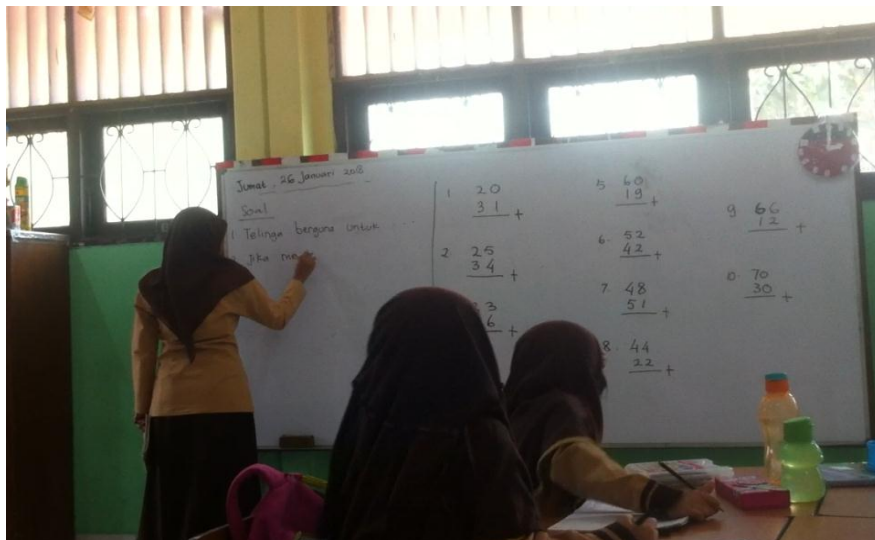 Jumat, 26 Januari 2018
Soal
1 Telinga berguna untuk ...
Jika me
1. 20
31 +
2. 25
34 +
3
6 +
5 60
19 +
6. 52
42 +
7. 48
51 +
8. 44
22 +
9 66
12 +
10. 70
30 +